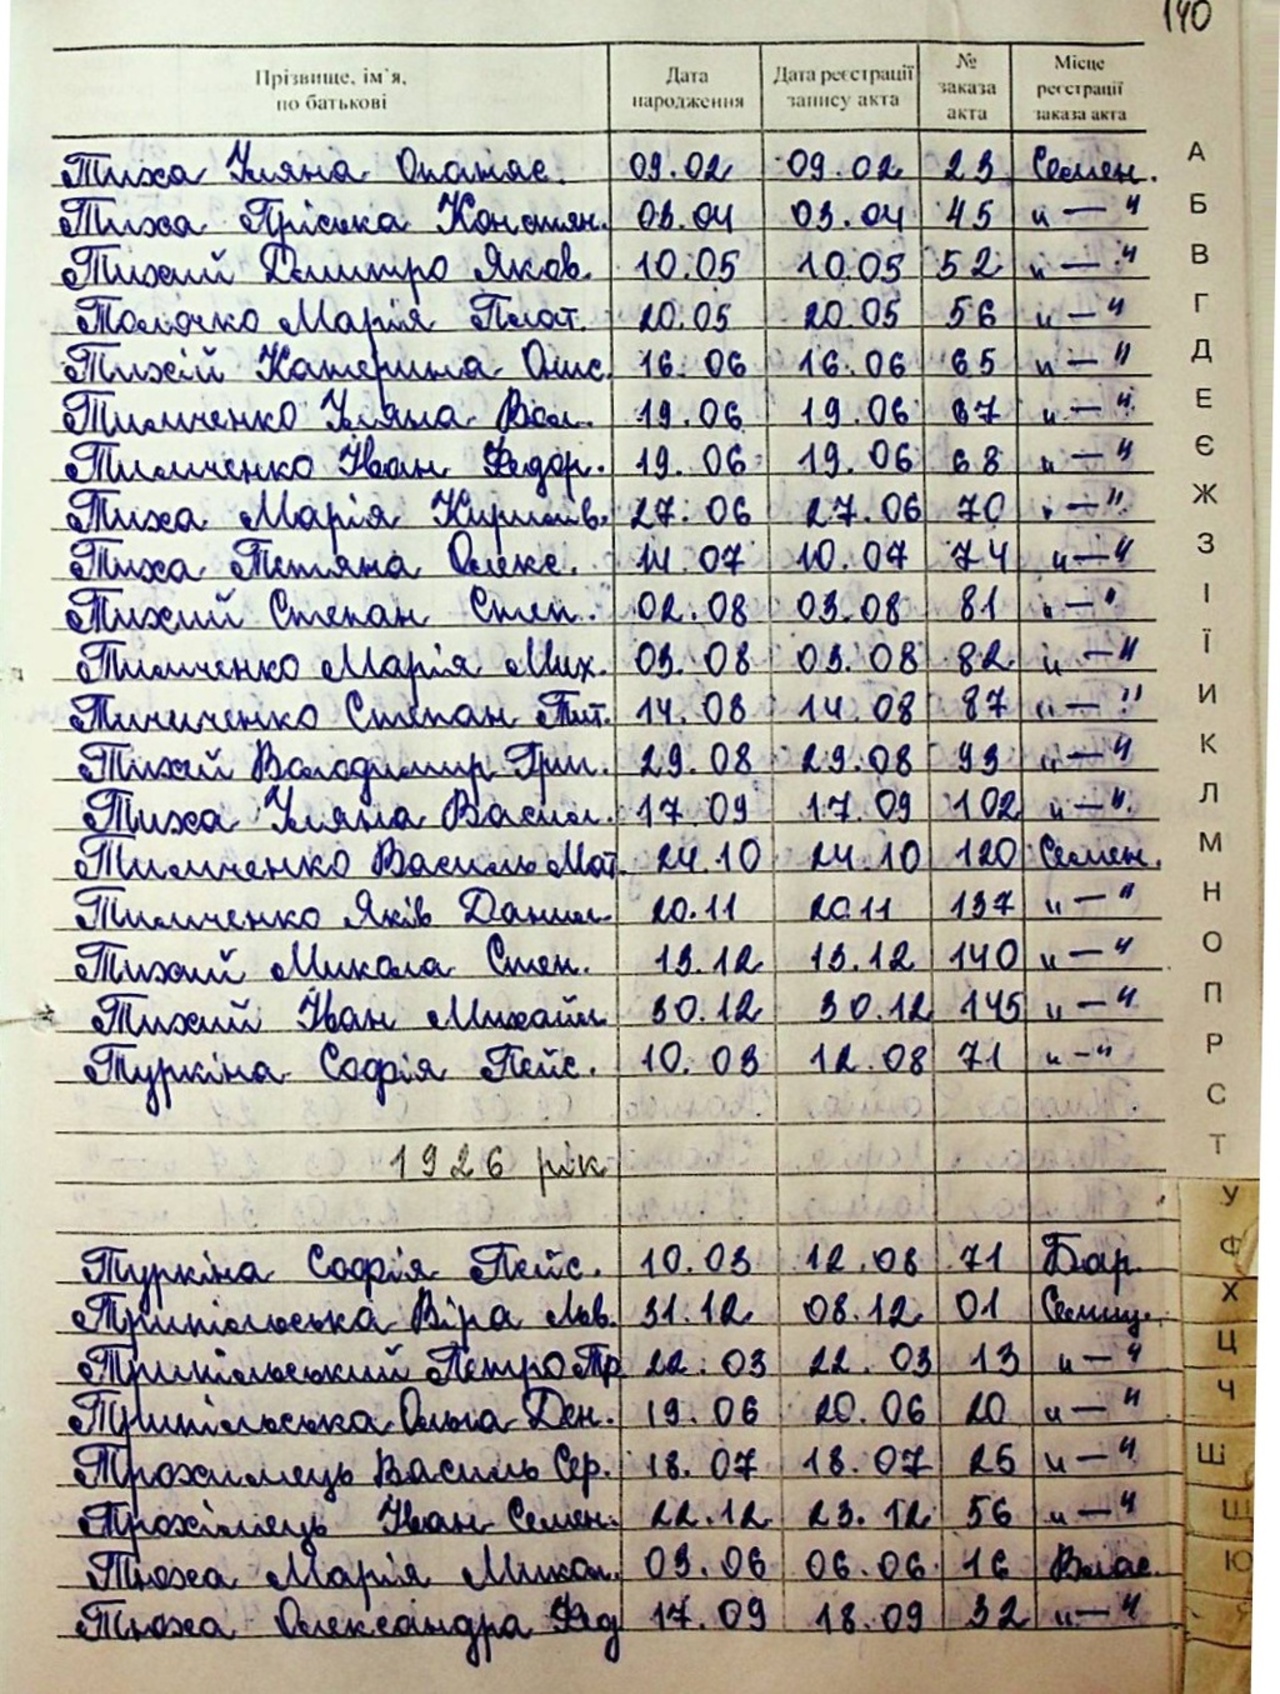 140
Прізвище, ім'я, по батькові | Дата народження | Дата реєстрації запису акта | № заказа акта | Місце реєстрації заказа акта
Тиха Уляна Опанас. 09.02 09.02 23 Семен.
Тиха Пріська Констян. 03.04 03.04 45 "—"
Тихий Дмитро Яков. 10.05 10.05 52 "—"
Толочко Марія Плат. 20.05 20.05 56 "—"
Тихій Катерина Онис. 16.06 16.06 65 "—"
Тимченко Уляна Вол. 19.06 19.06 67 "—"
Тимченко Іван Федор. 19.06 19.06 68 "—"
Тиха Марія Кирилів. 27.06 27.06 70 "—"
Тиха Тетяна Олекс. 10.07 74 "—"
Тихий Степан Степ. 02.08 03.08 81 "—"
Тимченко Марія Мих. 03.08 03.08 82 "—"
Тичиченко Степан Тит. 14.08 14.08 87 "—"
Тихий Володимир Гри. 29.08 29.08 93 "—"
Тиха Уляна Васил. 17.09 17.09 102 "—"
Тимченко Василь Мат. 24.10 24.10 120 Семен.
Тимченко Яків Данил. 20.11 20.11 137 "—"
Тихий Микола Степ. 13.12 13.12 140 "—"
Тихий Іван Михайл. 30.12 30.12 145 "—"
Туркіна Софія Пейс. 10.03 12.08 71 "—"
1926 рік
Туркіна Софія Пейс. 10.03 12.08 71 Бар.
Трипільська Віра Льв. 31.12 08.12 01 Селищ.
Трипільський Петро Тр 22.03 22.03 13 "—"
Трипільська Ольга Ден. 19.06 20.06 20 "—"
Трохимець Василь Сер. 18.07 18.07 25 "—"
Трохімець Іван Семен. 22.12 23.12 56 "—"
Тюха Марія Микол. 03.06 06.06 16 Влас.
Тюха Олександра Фед 17.09 18.09 32 "—"
А
Б
В
Г
Д
Е
Є
Ж
З
І
Ї
И
К
Л
М
Н
О
П
Р
С
Т
У
Ф
Х
Ц
Ч
Ш
Щ
Ю
Я